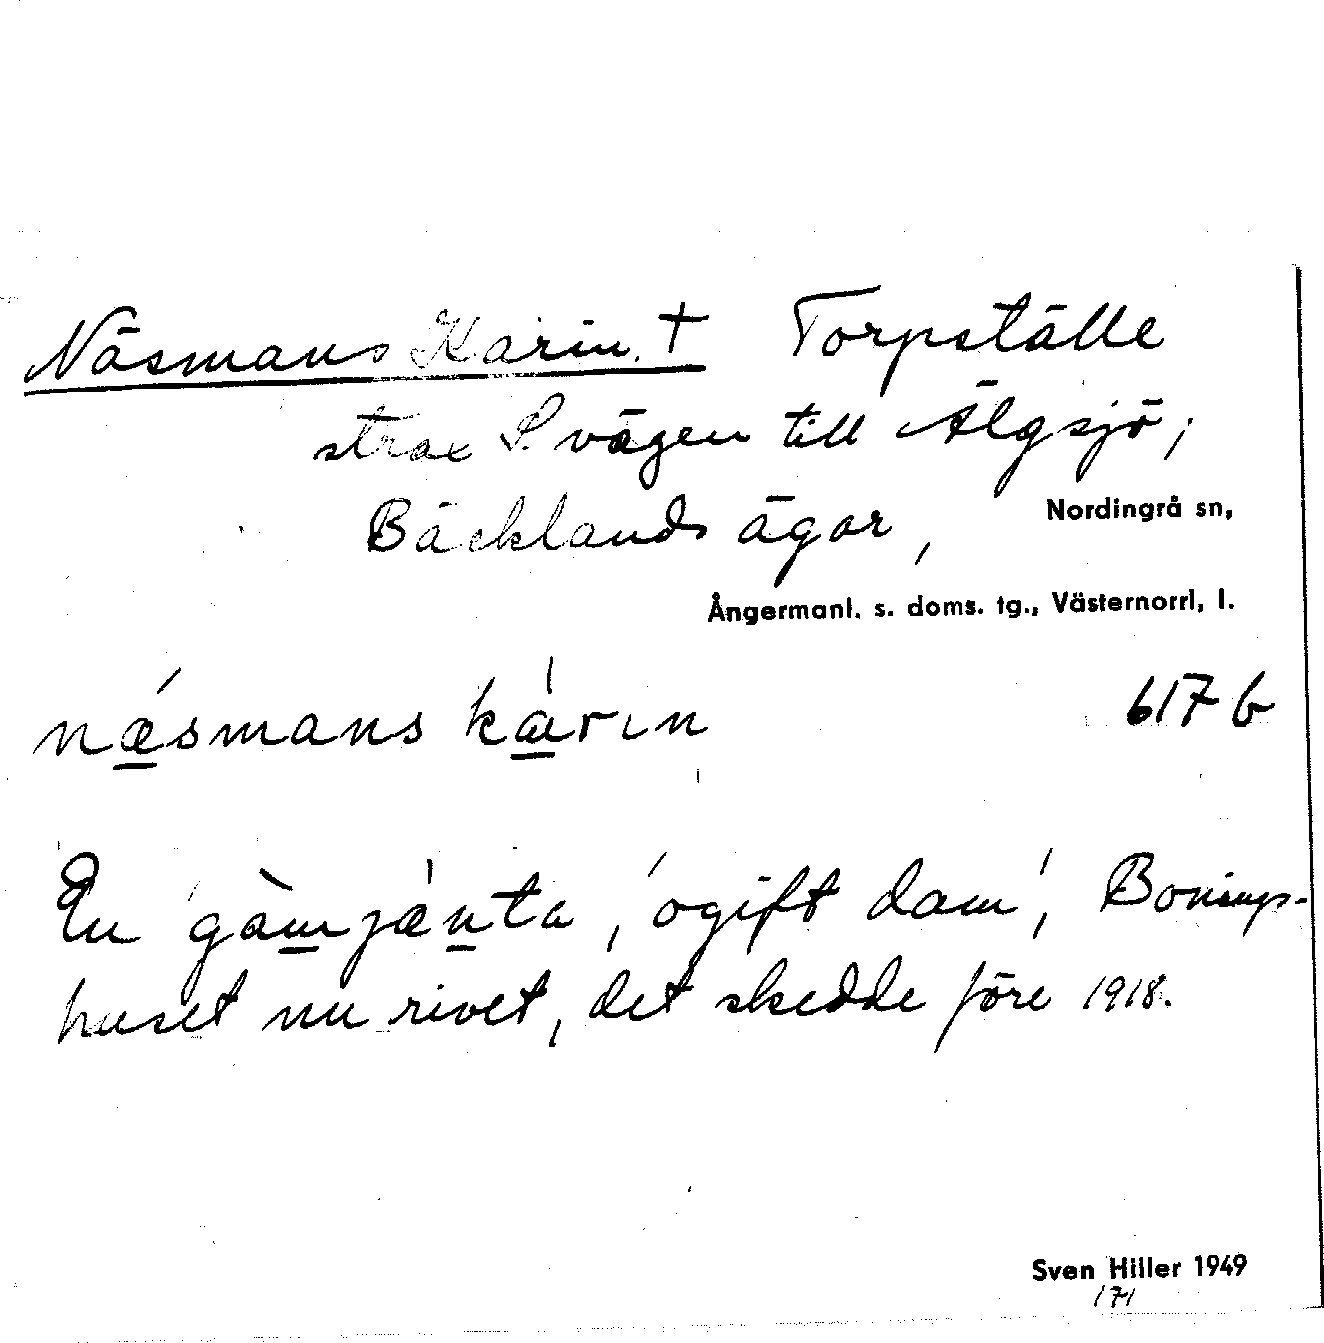 Näsmans Karin. † Torpställe
strax S. vägen till Älgsjö;
Bäcklands ägor,
Nordingrå sn,
Ångermanl. s. doms. tg., Västernorrl, l.
nǽsmans kærın
617 b
En gàmjænta, 'ogift dam', Bonings-
huset nu rivet, det skedde före 1918.
Sven Hiller 1949
171